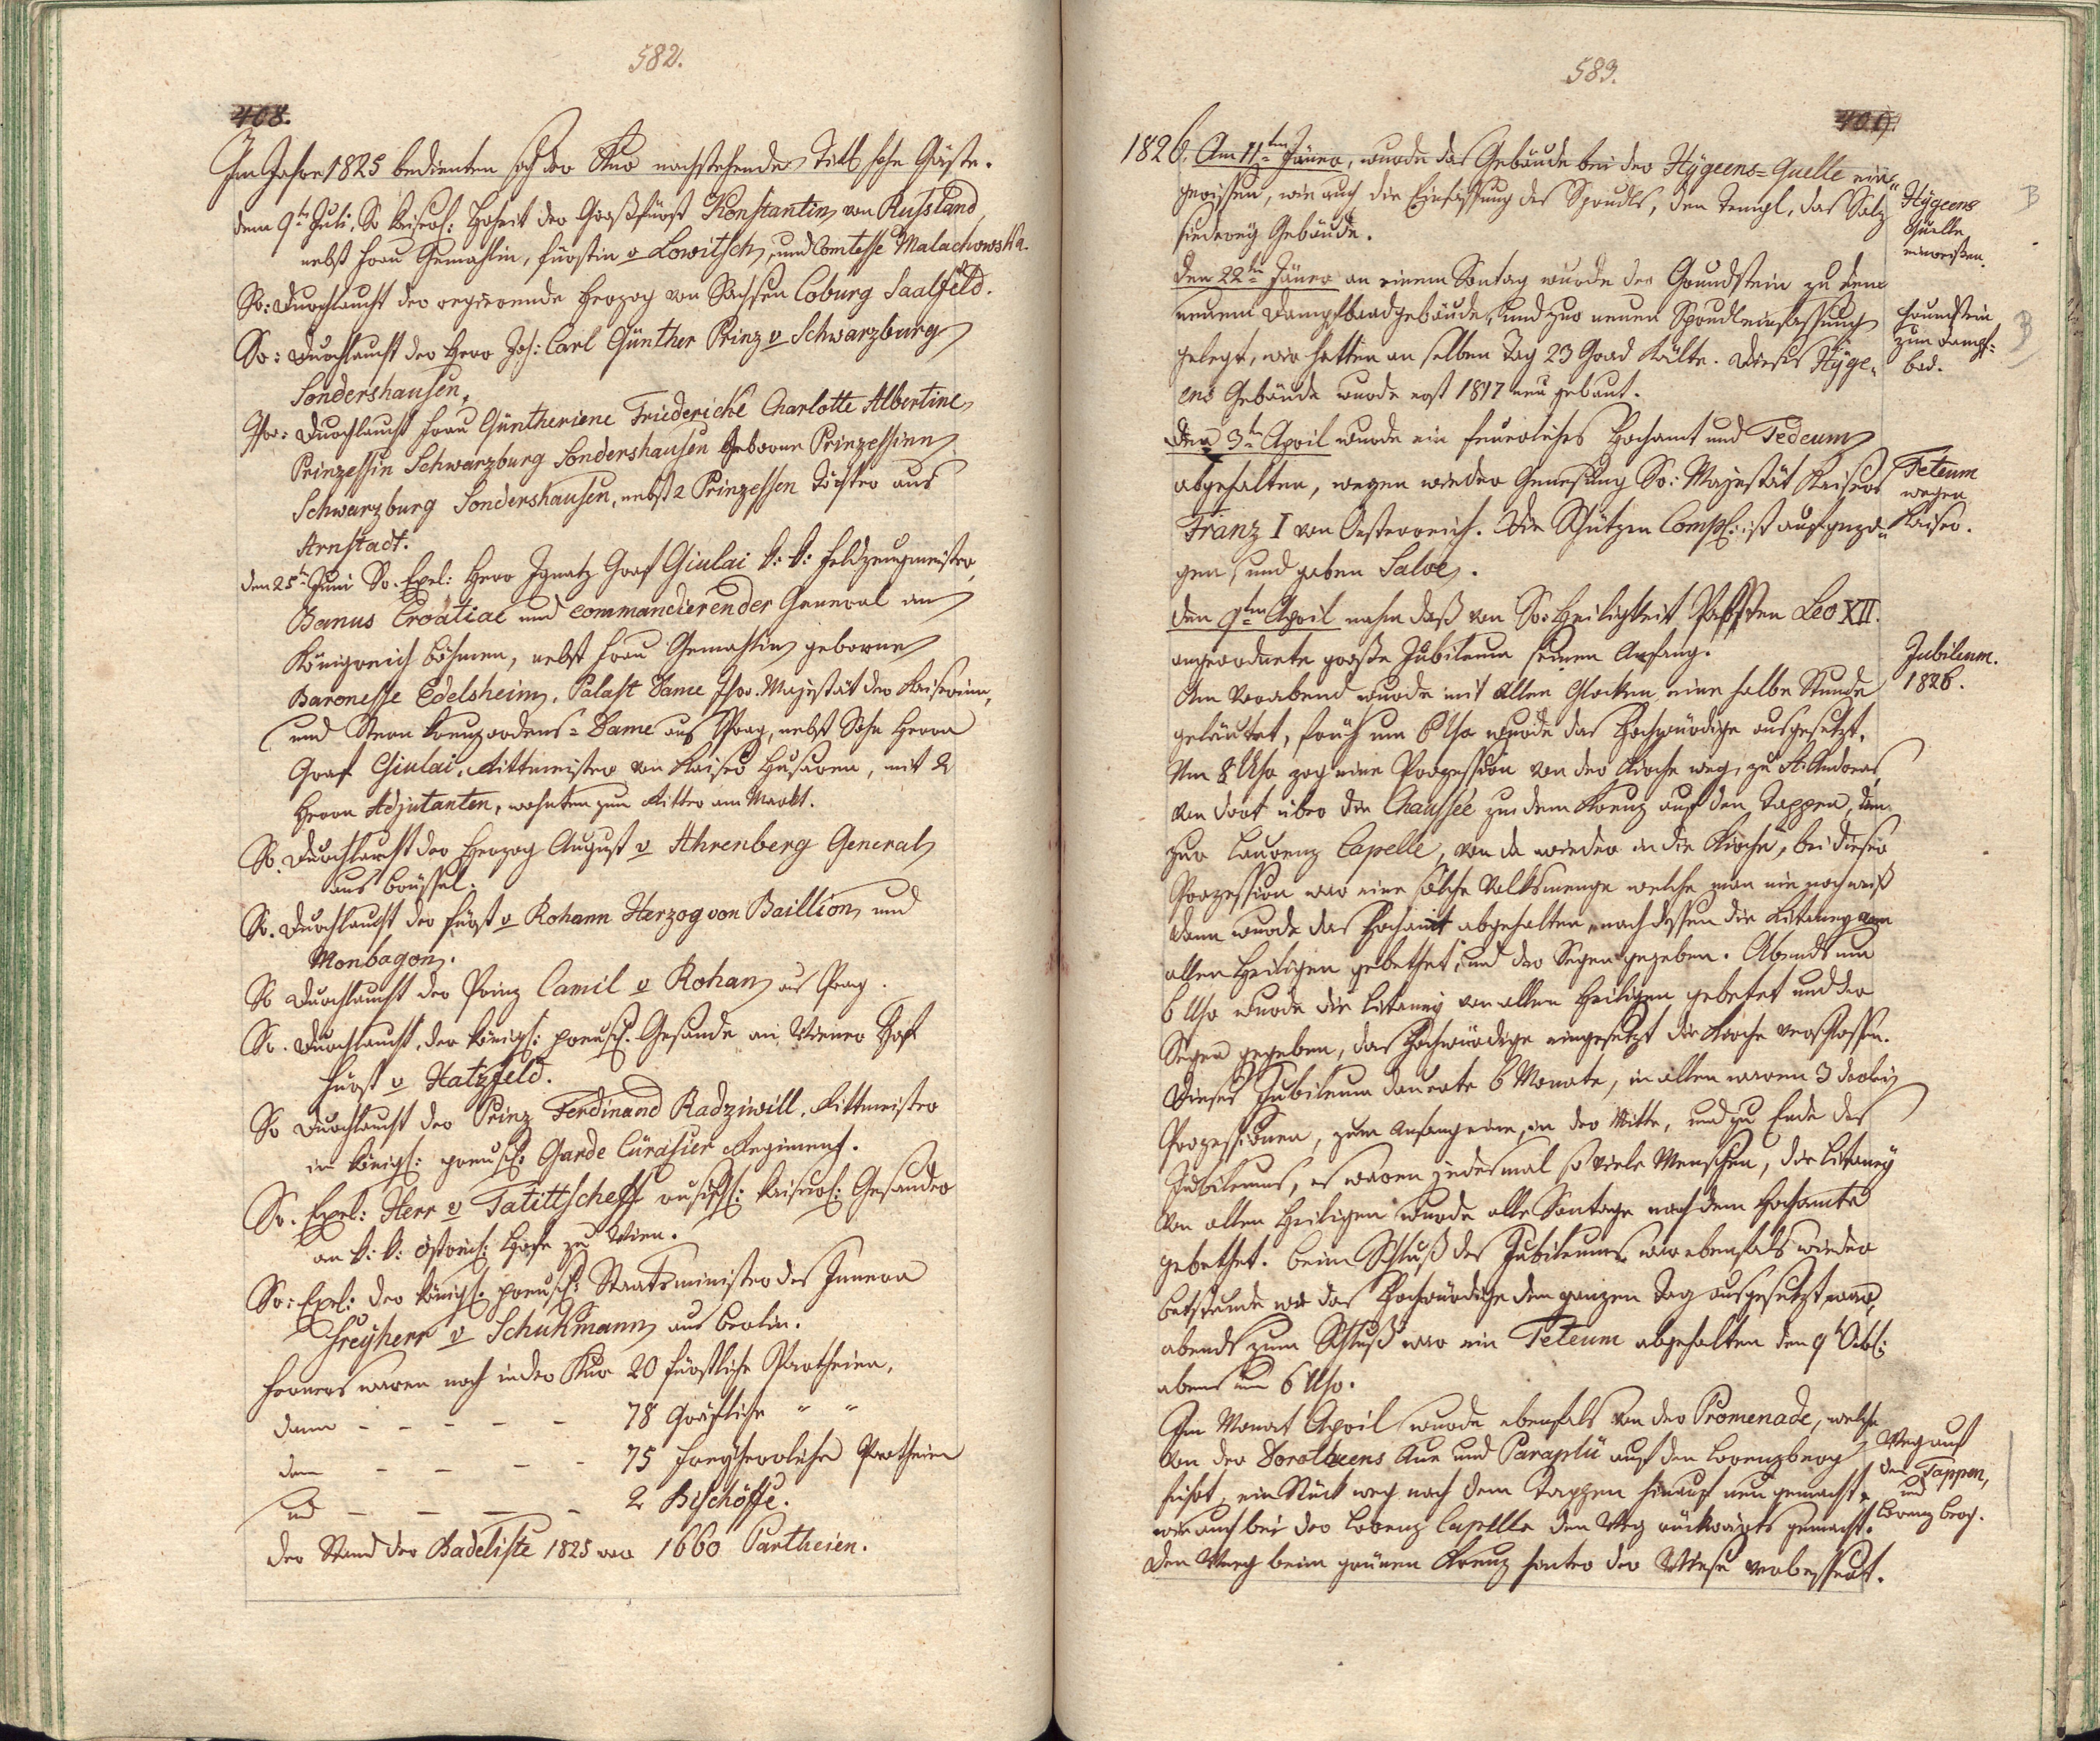 582.
408.
Im Jahre 1825 bedienten sich der Kur nachstehende Titl hohe Gäste.
dem 9tn Juli, Sr Kaiserl: Hoheit der Großfürst Konstantin von Russland,
nebst Frau Gemahlin, fürstin v Lowitsch, und Comtesse Malachowska.
Sr: Durchlaucht der regierende Herzog von Sachsen Coburg Saalfeld.
Sr: Durchlaucht der Herr Joh: Carl Günther Prinz v Schwarzburg
Sondershausen,
Ihr: Durchlaucht Frau Güntheriene Friedericke Charlotte Albertine
Prinzessin Schwarzburg Sondershausen Geborne Prinzessinn
Schwarzburg Sondershausen, nebst 2 Prinzessen Töchter aus
Arnstadt.
den 25tn Juni Sr. Exel: Herr Ignatz Graf Giulai k: k: Feldzeugmeister,
Banus Croatiae und commandierender General am
Königreich böhmen, nebst Frau Gemahlin geborne
Baronesse Edelsheim, Palast Dame Ihr. Majestät der Kaiserinn,
und Stern Kreuzordens-Dame aus Prag, nebst Sohn Herrn
Graf Giulai, Rittmeister von Kaiser Husaren, mit 2
Herrn Adjutanten, wohnten zum Ritter am Markt.
Sr. Durchlaucht der Herzog August v Ahrenberg General
aus brüssel.
Sr. Durchlaucht der Fürst v Rohann Herzog von Baillion und
Monbagon.
Sr Durchlaucht der Prinz Camil v Rohan aus Prag.
Sr. Durchlaucht, der königl: preusch. Gesande am Wiener Hof
Fürst v Hatzfeld.
Sr Durchlaucht der Prinz Ferdinand Radziwill, Rittmeister
im königl: preusch: Garde Cürasier Regiment.
Sr. Exel: Herr v Tatittscheff russisch: kaiserl: Gesander
am k: k: östreich: Hofe zu Wien.
Sr: Exel: der königl: preusch: Staatsminister des Innern
Freyherr v Schukmann aus berlin.
Ferners waren noch in der Kur 20 fürstliche Partheien,
dann - - - - - 78 Gräfliche " "
dann - - - - 75 Freyherrliche Partheien
und - - - - - 2 Bischöffe.
Der Stand der Badeliste 1825 war 1660 Partheien.
583.
409.
1826. Am 11ten Jäner, wurde das Gebäude bei der Hygeens-Quelle ein-
gerissen, wie auch die Einfassung des Sprudls, den Templ, das Salz
siederey Gebäude.
Hygeens
Quelle
einreissen.
B
Den 22tn Jäner an einem Sontag wurde der Grundstein zu dem
neuem Dampfbaadgebäude, und zur neuen Sprudleinfassung
gelegt, wir hatten an selben Tag 23 Grad Kälte. Dieses Hyge-
ens Gebäude wurde erst 1817 neu gebaut.
Grundstein
zum Dampf-
bad.
B
Den 3tn April wurde ein feuerliches Hochamt und Tedeum
abgehalten, wegen wieder Genesung Sr: Majestät Kaiser
Franz I von Oesterreich. Die Schützen Comp: ist aufgezo-
gen, und gaben Salve.
Teteum
wegen
Kaiser.
Den 9ten April nahm daß von Sr: Heiligkeit Pabsten Leo XII.
angeordnete große Jubileum seinen Anfang.
Am Vorabend wurde mit allen Glocken eine halbe Stunde
geläutet, früh um 6 Uhr wurde das Hochwürdige ausgesetzt,
Um 8 Uhr zog eine Prozession von der Kirche weg, zu St: Andreas,
von dort über die Chaussée zu dem Kreuz auf den Tappen, dan
zur Laurenz Capelle, von da wieder in die Kirche, bei dieser
Prozession war eine solche Volksmenge welche man nie noch weiß
dann wurde das Hochamt abgehalten, nach dessen die Litaney von
allen Heiligen gebethet, und der Segen gegeben. Abends um
6 Uhr wurde die Litaney von allen Heiligen gebetet und der
Segen gegeben, das Hochwürdige eingesetzt die Kirche verschlossen.
Dieses Jubileum dauerte 6 Monate, in allen waren 3 derlei
Prozessionen, zum Anfang eine, in der Mitte, und zu Ende des
Jubileums, es waren jedesmal so viele Menschen, die Litaney
von allen Heiligen wurde alle Sontage nach dem Hochamte
gebethet. beim Schluß des Jubileums war ebenfals wieder
betstunde wo das Hochwürdige den ganzen Tag ausgesetzt war,
abends zum Schluß war ein Teteum abgehalten den 9t Octb:
abens um 6 Uhr.
Jubileum.
1826.
Im Monat April wurde ebenfals von der Promenade, welche
von der Dorotheens Aue und Paraplü auf den Lorenzberg
führt, ein Stück weg nach dem Tappen hinauf neu gemacht,
wie auch bei der Lorenz Capelle den Weg rückwärts gemacht.
Den Weeg beim grünen Kreuz hinter der Wiese verbessert.
Weg auf
den Tappen,
und
Lorenz berg.